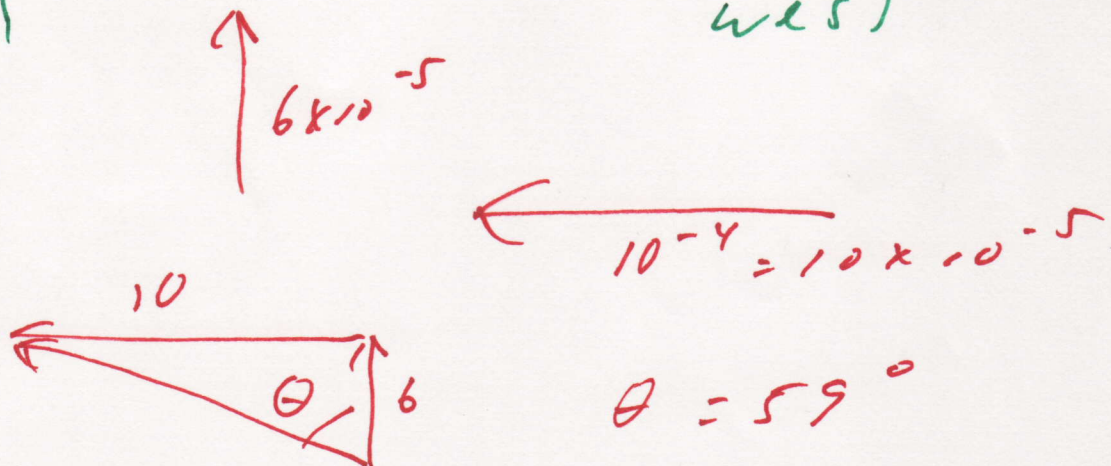 west
6 x 10^-5
10^-4 = 10 x 10^-5
10
θ 6 θ = 59°